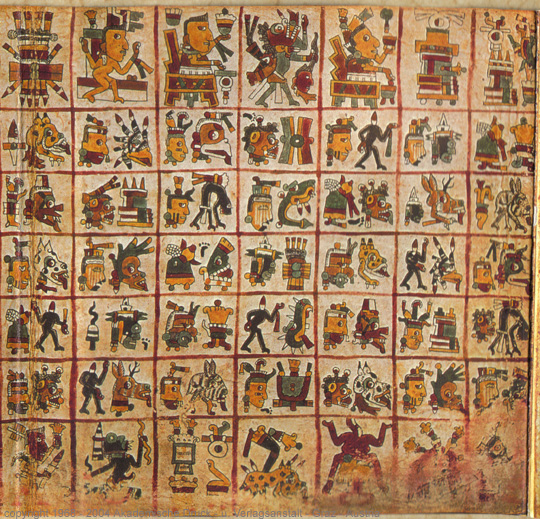 copyright - 2004 Akademische Druck- u. Verlagsanstalt - Graz - Austria